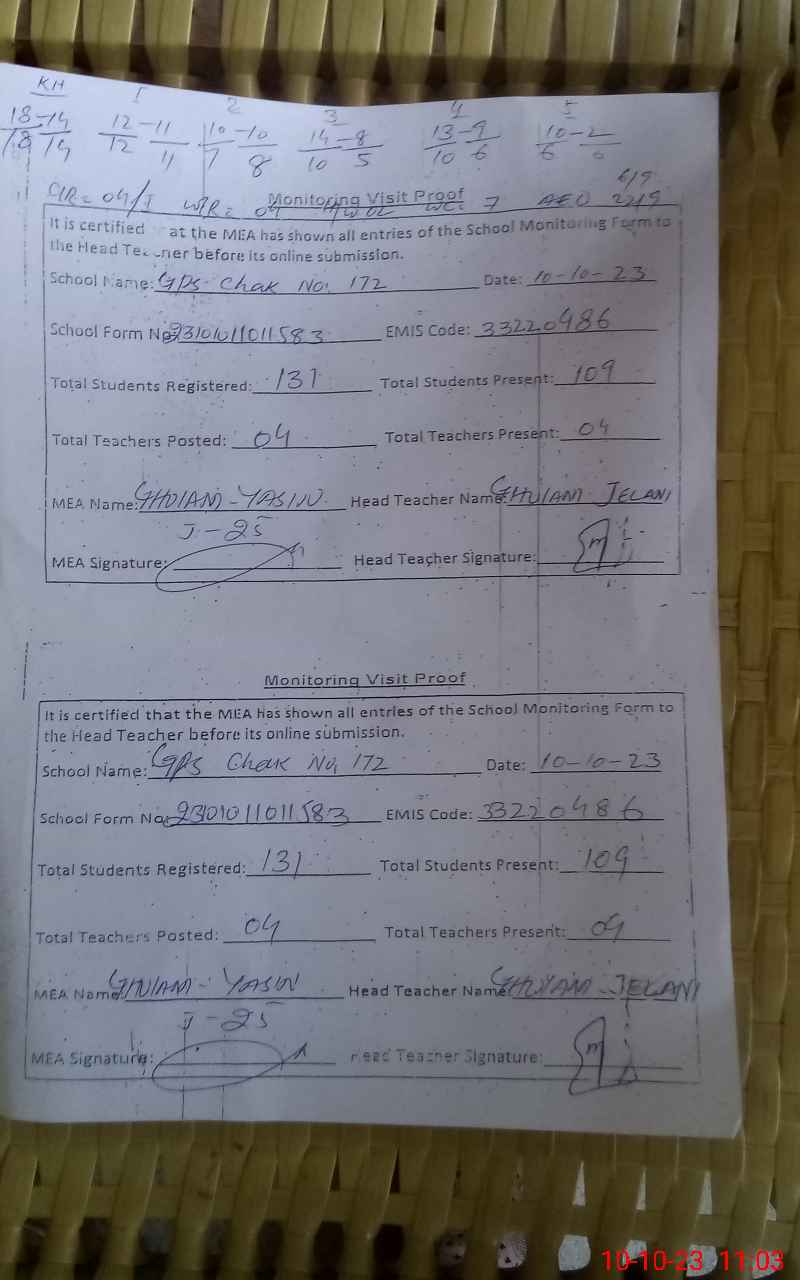 KH 1 2 3 4 5
18-14 12-11 10-10 14-8 13-9 10-2
18 14 12 11 7 8 10 5 10 6 6
6/9
04 7 AEO 22/9
Monitoring Visit Proof
It is certified at the MEA has shown all entries of the School Monitoring Form to
the Head before its online submission.
School Name: GPS Chak No. 172 Date: 10-10-23
School Form No: 2310101101 1583 EMIS Code: 33220486
Total Students Registered: 131 Total Students Present: 109
Total Teachers Posted: 04 Total Teachers Present: 04
MEA Name: GHULAM-YASIN Head Teacher Name: GHULAM JELANI
J-25
MEA Signature: Head Teacher Signature:
Monitoring Visit Proof
It is certified that the MEA has shown all entries of the School Monitoring Form to
the Head Teacher before its online submission.
School Name: GPS Chak No, 172 Date: 10-10-23
School Form No: 2310101101 1583 EMIS Code: 33220486
Total Students Registered: 131 Total Students Present: 109
Total Teachers Posted: 04 Total Teachers Present: 04
MEA Name GHULAM-YASIN Head Teacher Name GHULAM-JELANI
J-25
MEA Signature: Head Teacher Signature:
10-10-23 11:03